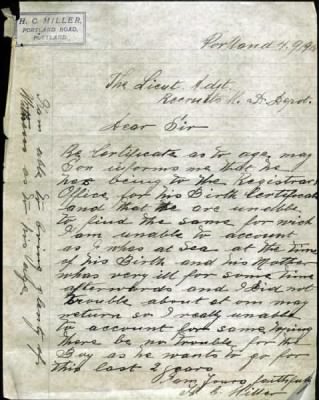 H. C. MILLER,
PORTLAND ROAD,
PORTLAND.
Portland 4.9.
The Lieut. Adjt.
Recruits
Dear Sir
Re Certificate as to age, my
Son informs me that he
has being to the Registrars
Office, for his Birth Certificate
and that the are unable
to find the same for wich
I am unable to account
as I was at Sea at the time
of his Birth and his Mother
was very ill for some time
afterwards and I did not
trouble about it on my
return so I really unable
to account for same, hoping
there be no trouble, for the
Boy as he wants to go for
this last 2 years
I am Yours faithfully
H. C. Miller
I am able to bring plenty of
Witness as to his Age